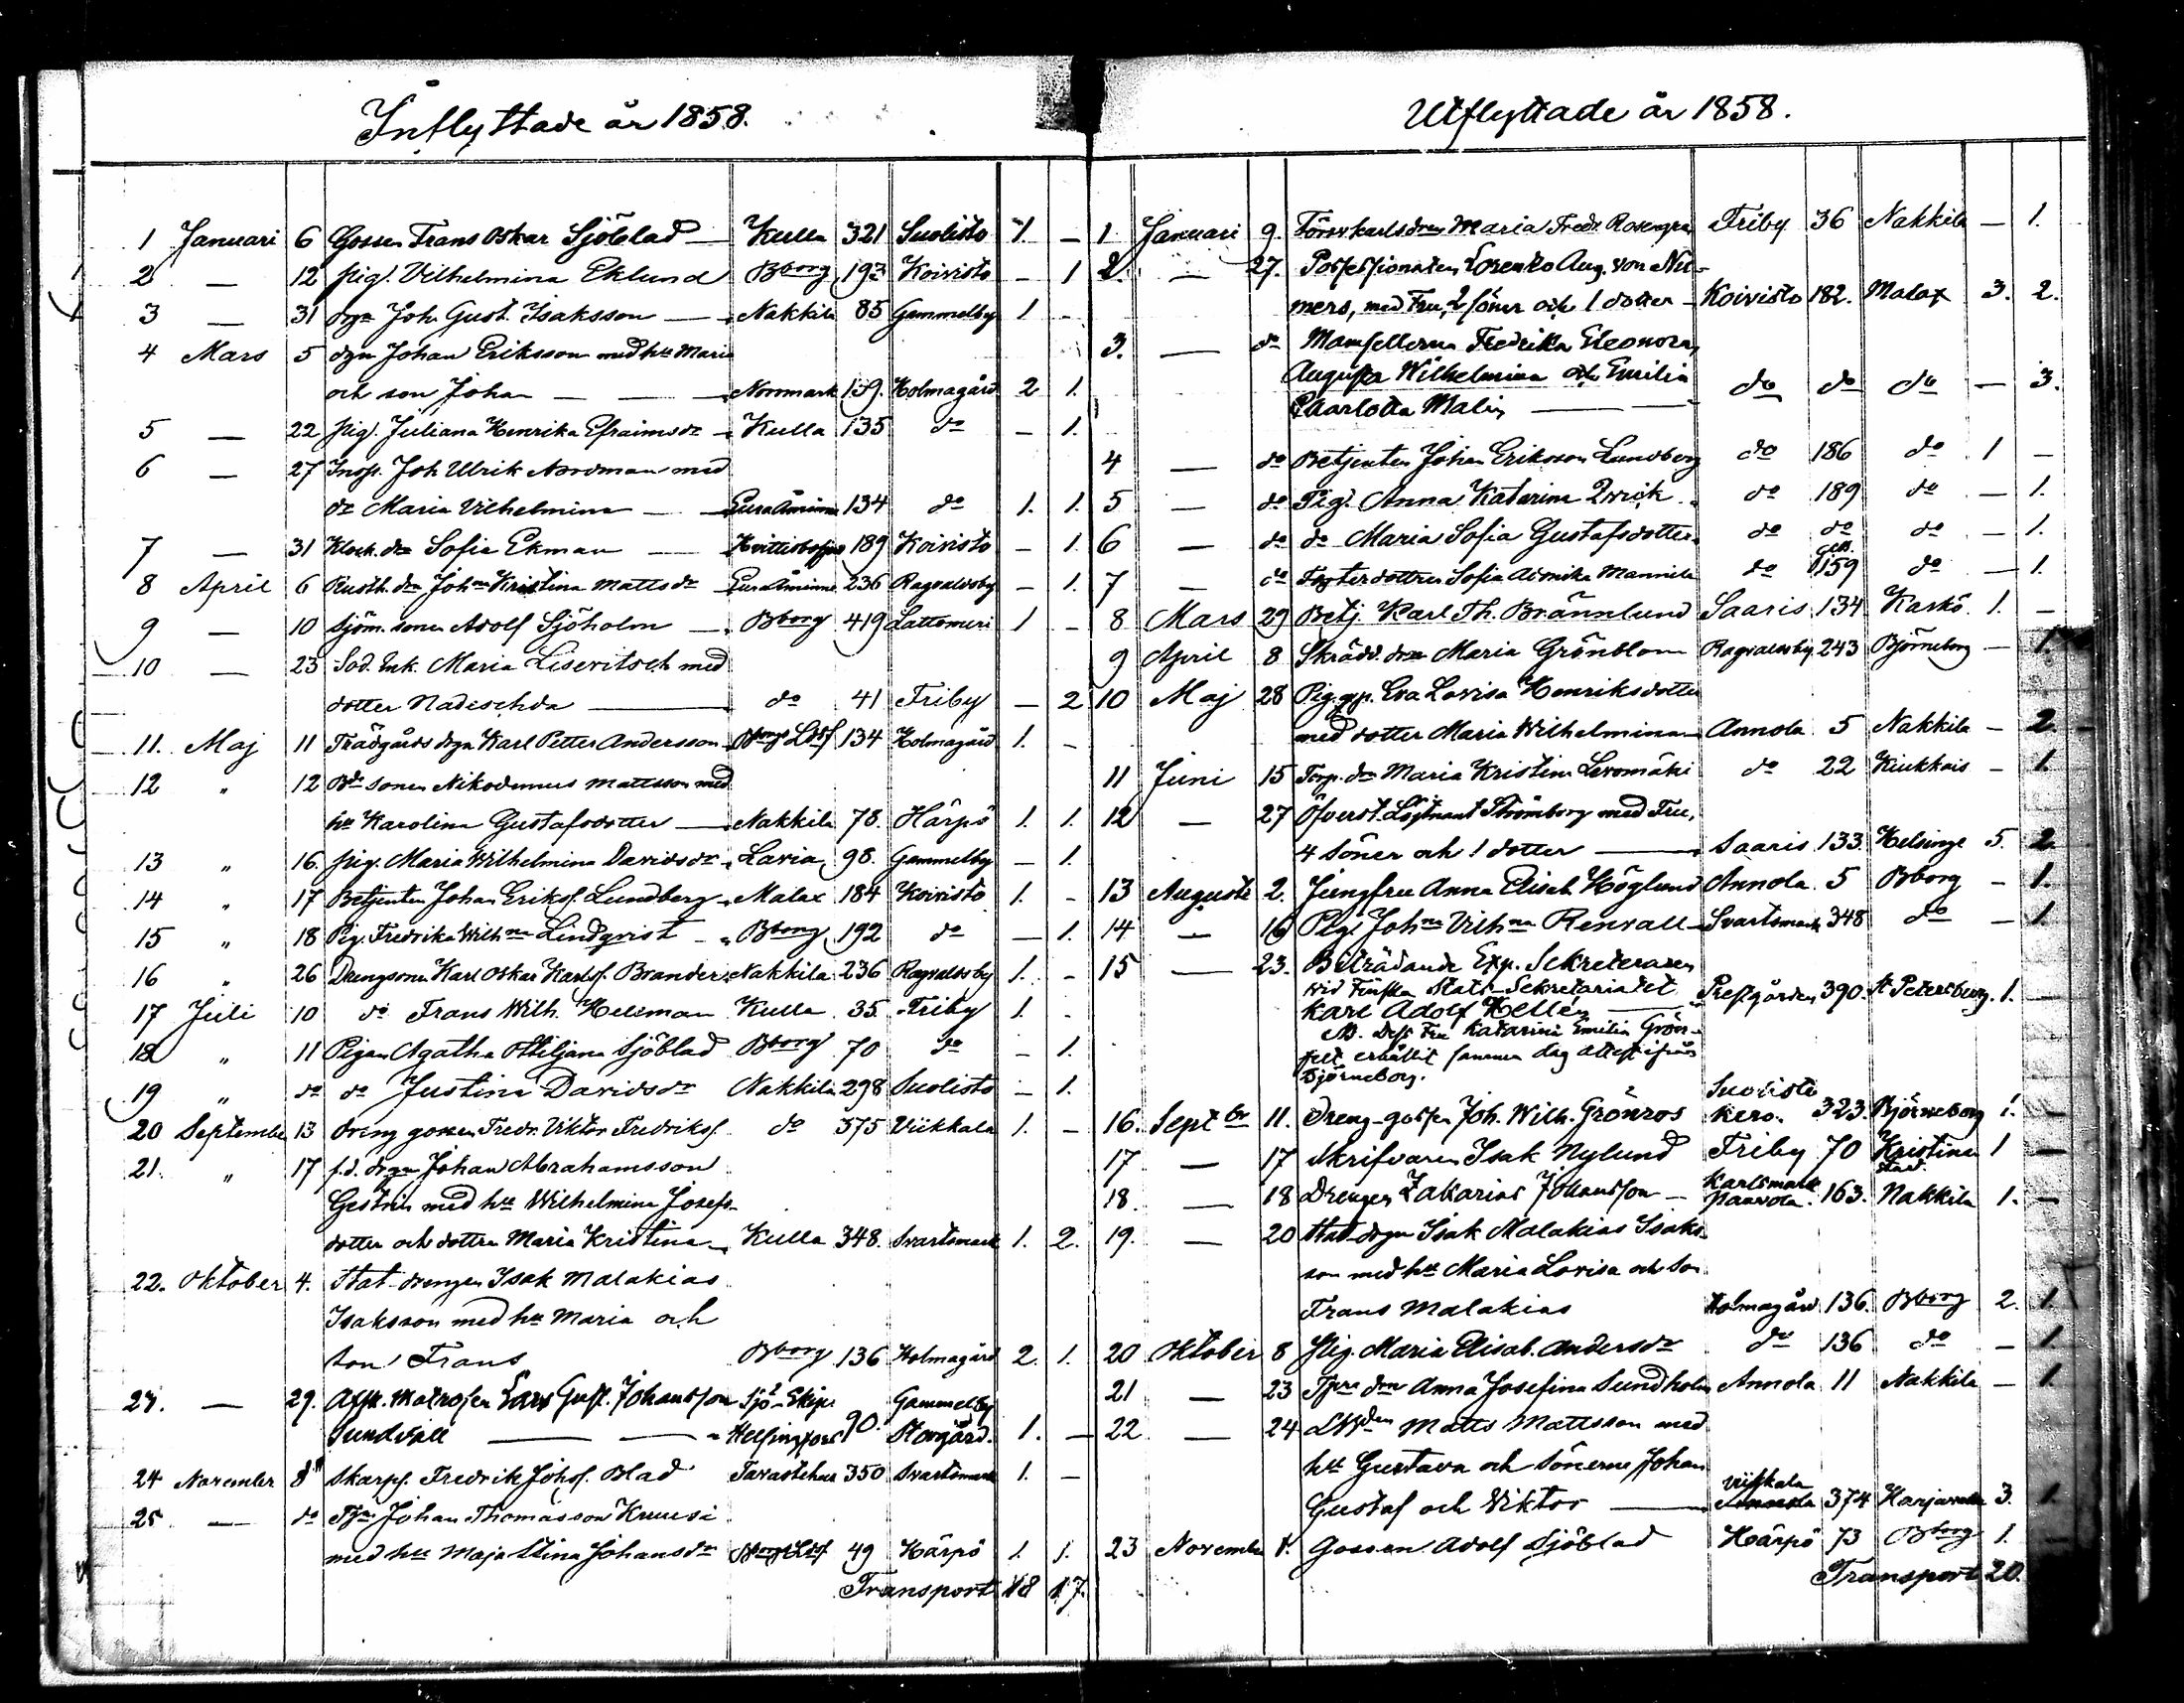 Inflyttade år 1858.
1 Januari 6 Gossen Frans Oskar Sjöblad — Kulla 321 Suolisto 1. —
2 — 12 pig. Vilhelmina Eklund Bborg 193 Koivisto — 1
3 — 31 drgn Joh. Gust. Isaksson — Nakkila 85 Gammelby 1 -
4 Mars 5 dgn Johan Eriksson med hu Maria
och son Johan — — Norrmark 139. Holmagård 2 1.
5 — 22 pig. Juliana Henrika Efraimsdr Kulla 135 do — 1.
6 — 27 Insp. Joh Ulrik Nordman med
dr Maria Vilhelmina — Eura Åminne 134 do 1. 1.
7 — 31 Klock. dn Sofia Ekman — 189 Koivisto — 1.
8 April 6 Rusth. dn Johna Kristina Mattsdr Eura Åminne 236 Ragvaldsby — 1.
9 — 10 Sjöm. sonen Adolf Sjöholm — Bborg 419 Lattomeri 1 -
10 — 23 Sod. Enk. Maria Lisevitsch med
dotter Nadeschda — do 41 Friby — 2
11. Maj 11 Trädgårds dgn Karl Petter Andersson Bborgs Ldsf 134 Holmagård 1. -
12 " 12 Bde sonen Nikodemus Mattsson med
hu Karolina Gustafsdotter — Nakkila 78. Härpö 1. 1.
13 " 16. pig. Maria Wilhelmina Davidsdr Lavia 98. Gammelby — 1.
14 " 17 Betjenten Johan Eriksf. Lundberg Malax 184 Koivisto 1. -
15 " 18 Pig. Fredrika Wilhna Lindqvist — Bborg 192 do — 1.
16 " 26 Drengsonen Karl Oskar Karlsf. Brander Nakkila 236 Ragvaldsby 1. -
17 Juli 10 do Frans Wilh. Hellman Kulla 35 Friby 1. -
18 " 11 Pigan Agatha Ottiljana Sjöblad Bborg 70 do — 1.
19 " do do Justina Davidsdr Nakkila 298 Suolisto — 1.
20 September 13 Dreng gossen Fredr. Viktor Fredriksf. do 375 Viikkala 1. —
21. " 17 f.d. drgn Johan Abrahamsson
Gestrin med hu Wilhelmina Josefs-
dotter och dottra Maria Kristina Kulla 348. Svartsmark 1. 2.
22. Oktober 4. Stat-drengen Isak Malakias
Isaksson med hu Maria och
son Frans Bborg 136 Holmagård 2. 1.
23. — 29. Afsk. Matrosen Lars Gust. Johansson Sjö-Ekip. Gammelby
Sundvall — — Helsingfors 90. Storgård. 1. —
24 November 8 Skarpf. Fredrik Johsf. Blad Tavastehus 350 Svartsmark 1. —
25 — do Johan Thomasson Kruusi
med hu Maja Stina Johansdr Bborgs Ldsf 49 Härpö 1. 1.
Transport 18 17.
Utflyttade år 1858.
1 Januari 9. Förvr. karlsdren Maria Fredr. Rosengren Friby 36 Nakkila — 1.
2. — 27. Possessionaten Lorentz Aug. von Nu-
mers, med Fru, 2 söner och 1 dotter — Koivisto 182. Malax 3. 2.
3. — do Mamsellerna Fredrika Eleonora,
Augusta Wilhelmina och Emilia
Charlotta Malin — — do do do — 3.
4 — do Betjenten Johan Eriksson Lundberg do 186 do 1 —
5 — do Pig. Anna Katarina Qvick do 189 do — 1.
6 — do do Maria Sofia Gustafsdotter do do do — 1.
7 — do Fosterdottren Sofia Mannila do 159 do — 1.
8 Mars 29 Betj. Karl Th. Brännlund Saaris 134 Kaskö 1. —
9 April 8 Skrädd. drn Maria Grönblom Ragvaldsby 243 Björneborg — 1.
10 Maj 28 Pig. Eva Lovisa Henriksdotter
med dotter Maria Wilhelmina Annola 5 Nakkila — 2.
11 Juni 15 Torp. drn Maria Kristina Levomäki do 22 Kiukkais — 1.
12 — 27 Öfverst Löjtnant Strömborg med Fru,
4 söner och 1 dotter — Saaris 133. Helsinge 5. 2.
13 Augusti 2. Jungfru Anna Elisab. Höglund Annola. 5 Bborg — 1.
14 — 16 Pig. Johna Vilhna Renvall Svartsmark 348 do — 1.
15 — 23. Biträdande Exp. Sekreteraren
vid Finska Stats-Sekretariatet
Karl Adolf Hellén — Prestgården 390. St Petersburg. 1. —
NB. Dess Fru Katarina Emilia Grön-
felt erhållit samma dag attest ifrån
Björneborg.
16. Septbr 11. Dreng-gossen Joh. Wilh. Grönros Suolisto Kero. 323. Björneborg 1. —
17 — 17 Skrifvaren Isak Nylund Friby 70 Kristinestad. 1 —
18. — 18 Drengen Zakarias Johansson — Karlsmark Paavola. 163. Nakkila 1. —
19. — 20 Stat-drgn Isak Malakias Isaks-
son med hu Maria Lovisa och son
Frans Malakias Holmagård 136. Bborg 2. 1.
20 Oktober 8 pig. Maria Elisab. Andersdr do 136 do — 1.
21 — 23 Tjvu drn Anna Josefina Sundholm Annola 11 Nakkila — 1.
22 — 24 Matts Mattsson med
hu Gustava och sönerne Johan
Gustaf och Viktor — Viikkala 374 Harjavalta 3. 1.
23 November 1. Gossen Adolf Sjöblad Härpö 73 Bborg 1. —
Transport 20.